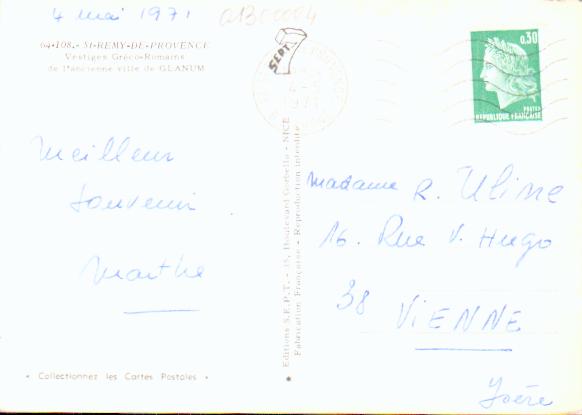 4 mai 1971
01300004
64-108. - St-REMY-DE-PROVENCE
Vestiges Gréco-Romains
de l'ancienne ville de GLANUM
SEPT
4 -
1971
0,30
POSTES
REPUBLIQUE FRANÇAISE
Meilleur
souvenir
Marthe
Editions S.E.P.T. - 15, Boulevard Gorbella - NICE
Fabrication Française - Reproduction interdite
Madame R. Uline
16. Rue V. Hugo
38 VIENNE
Isère
• Collectionnez les Cartes Postales •